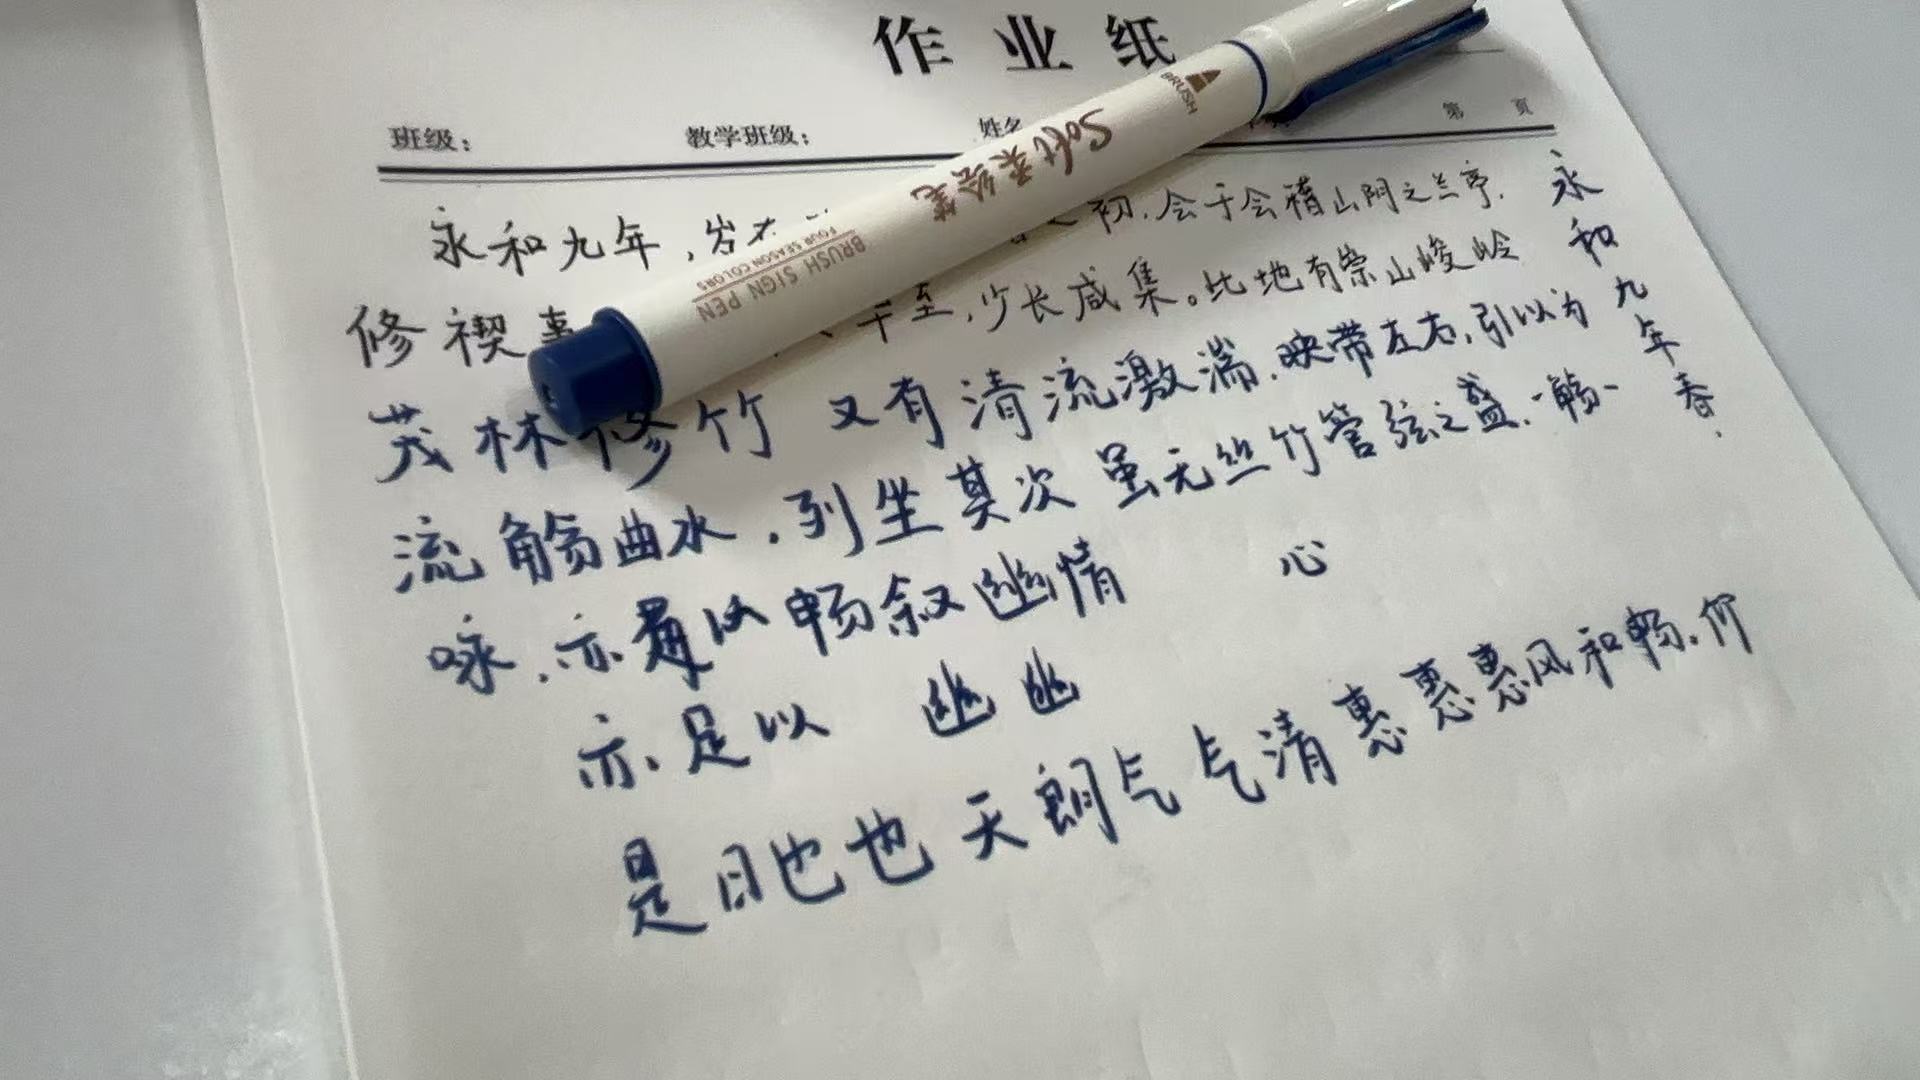 作业纸
班级： 教学班级： 姓名 第 页
BRUSH
Soft 柔绘笔
BRUSH SIGN PEN
FOUR SEASON COLORS
永和九年，岁在 初，会于会稽山阴之兰亭，
修禊事 至，少长咸集。此地有崇山峻岭
茂林修竹 又有清流激湍，映带左右，引以为
流觞曲水，列坐其次 虽无丝竹管弦之盛，一觞一
咏，亦足以畅叙幽情 心
亦足以 幽幽
是日也也天朗气气清惠惠惠风和畅，仰
永和九年春，